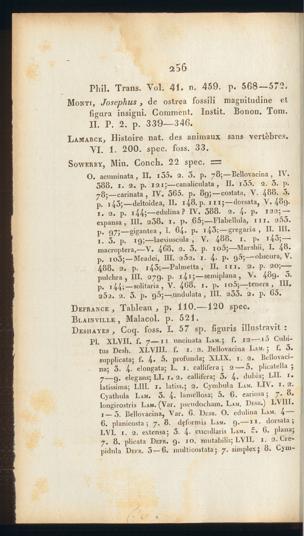 256
Phil. Trans. Vol. 41. n. 459. p. 568—572.
MONTI, Josephus, de ostrea fossili magnitudine et
figura insigni. Comment. Instit. Bonon. Tom.
II. P. 2. p. 339—346.
LAMARCK, Histoire nat. des animaux sans vertèbres.
VI. 1. 200. spec. foss. 33.
SOWERBY, Min. Conch. 22 spec. =
O. acuminata, II. 135. 2. 3. p. 78;—Bellovacina, IV.
388. 1. 2. p. 121;—canaliculata, II. 135. 2. 3. p.
78;—carinata, IV. 365. p. 89;—costata, V. 488. 3.
p. 143;—deltoidea, II. 148. p. 111;—dorsata, V. 489.
1. 2. p. 144;—edulina? IV. 388. 2. 4. p. 122;—
expansa, III. 238. 1. p. 65;—Flabellula, III. 253.
p. 97;—gigantea, I. 64. p. 143;—gregaria, II. III.
1. 3. p. 19;—laeviuscula, V. 488. 1. p. 143;—
macroptera,—V. 468. 2. 3. p. 103;—Marshii, I. 48.
p. 103;—Meadei, III. 252. 1. 4. p. 95;—obscura, V.
488. 2. p. 143;—Palmetta, II. 111. 2. p. 20;—
pulchra, III. 279. p. 141;—semiplana, V. 489. 3.
p. 144;—solitaria, V. 468. 1. p. 103;—tenera, III.
252. 2. 3. p. 95;—undulata, III. 238. 2. p. 65.
DEFRANCE, Tableau, p. 110.—120 spec.
BLAINVILLE, Malacol. p. 521.
DESHAYES, Coq. foss. I. 57 sp. figuris illustravit:
Pl. XLVII. f. 7—11 uncinata LAM.; f. 12—15 Cubi-
tus Desh. XLVIII. f. 1. 2. Bellovacina LAM.; f. 3.
supplicata; f. 4. 5. profunda; XLIX. 1. 2. Bellovaci-
na; 3. 4. elongata; L. 1. callifera; 2—5. plicatella;
7—9. elegans; LI. 1. 2. callifera; 3. 4. dubia; LII. 1.
latissima; LIII. 1. latiss.; 2. Cymbula LAM. LIV. 1. 2.
Cyathula LAM. 3. 4. lamellosa; 5. 6. cariosa; 7. 8.
longirostris LAM. (Var. pseudocham. LAM, DESH.) LVIII.
1—5. Bellovacina, Var. 6. DESH. O. edulina LAM. 4—
6. planicosta; 7. 8. deformis LAM. 9.—11. dorsata;
LVI. 1. 2. extensa; 3. 4. cucullaris LAM. 5. 6. plana;
7. 8. plicata DEFR. 9. 10. mutabilis; LVII. 1. 2. Cre-
pidula DEFR. 3—6. multicostata; 7. simplex; 8. Cym-